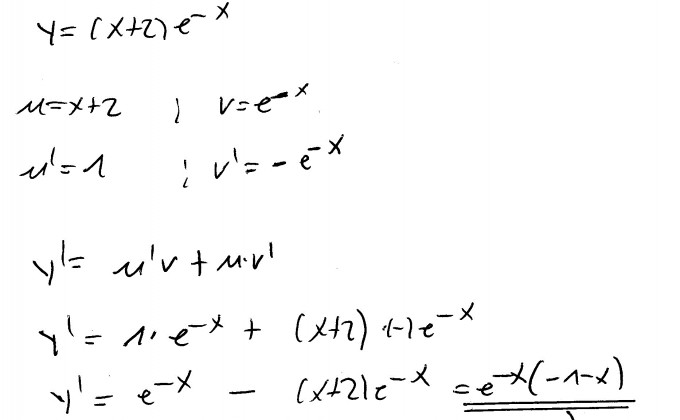 y = (x+2) e^-x
u = x+2 ; v = e^-x
u' = 1 ; v' = - e^-x
y' = u'v + u·v'
y' = 1· e^-x + (x+2) ·(-) e^-x
y' = e^-x - (x+2) e^-x = e^-x (-1-x)